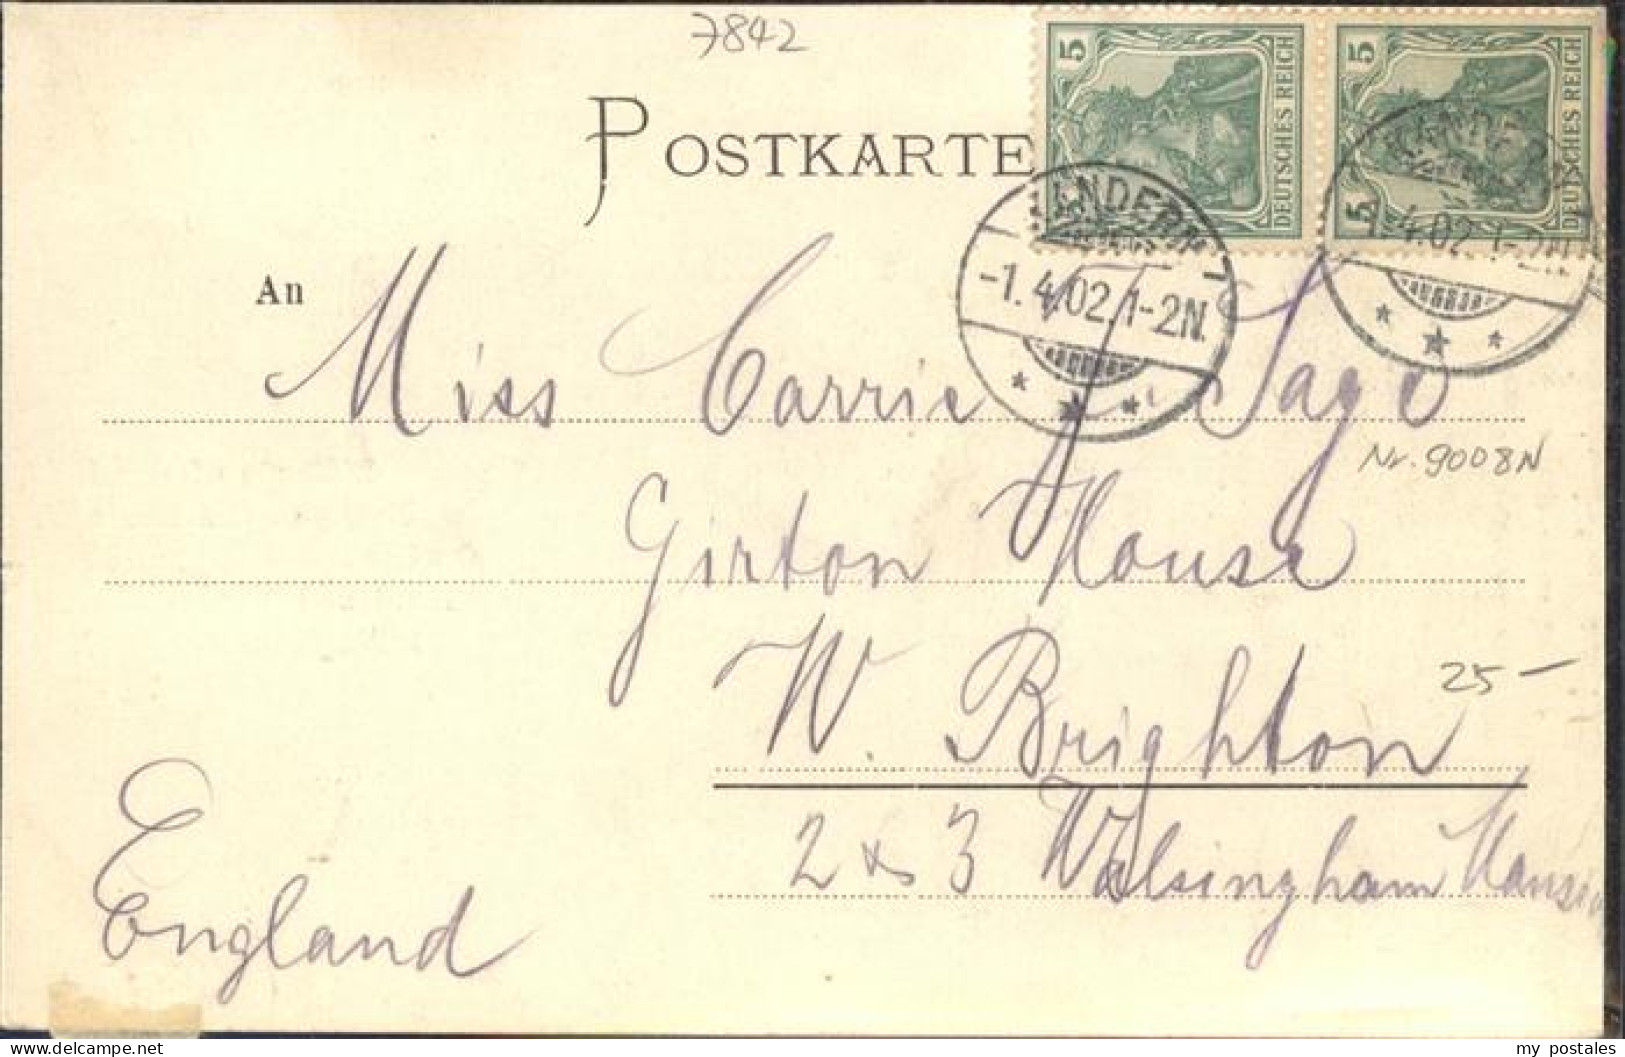 7842
POSTKARTE
5 DEUTSCHES REICH
5 5 DEUTSCHES REICH
KANDERN
-1.4.02. 1-2N.
4.02. 1-2N.
An
Miss Carrie J. Sayo
Nr. 9008N
Girton House
W. Brighton
25-
2 & 3 Walsingham Mansio
England
my postales